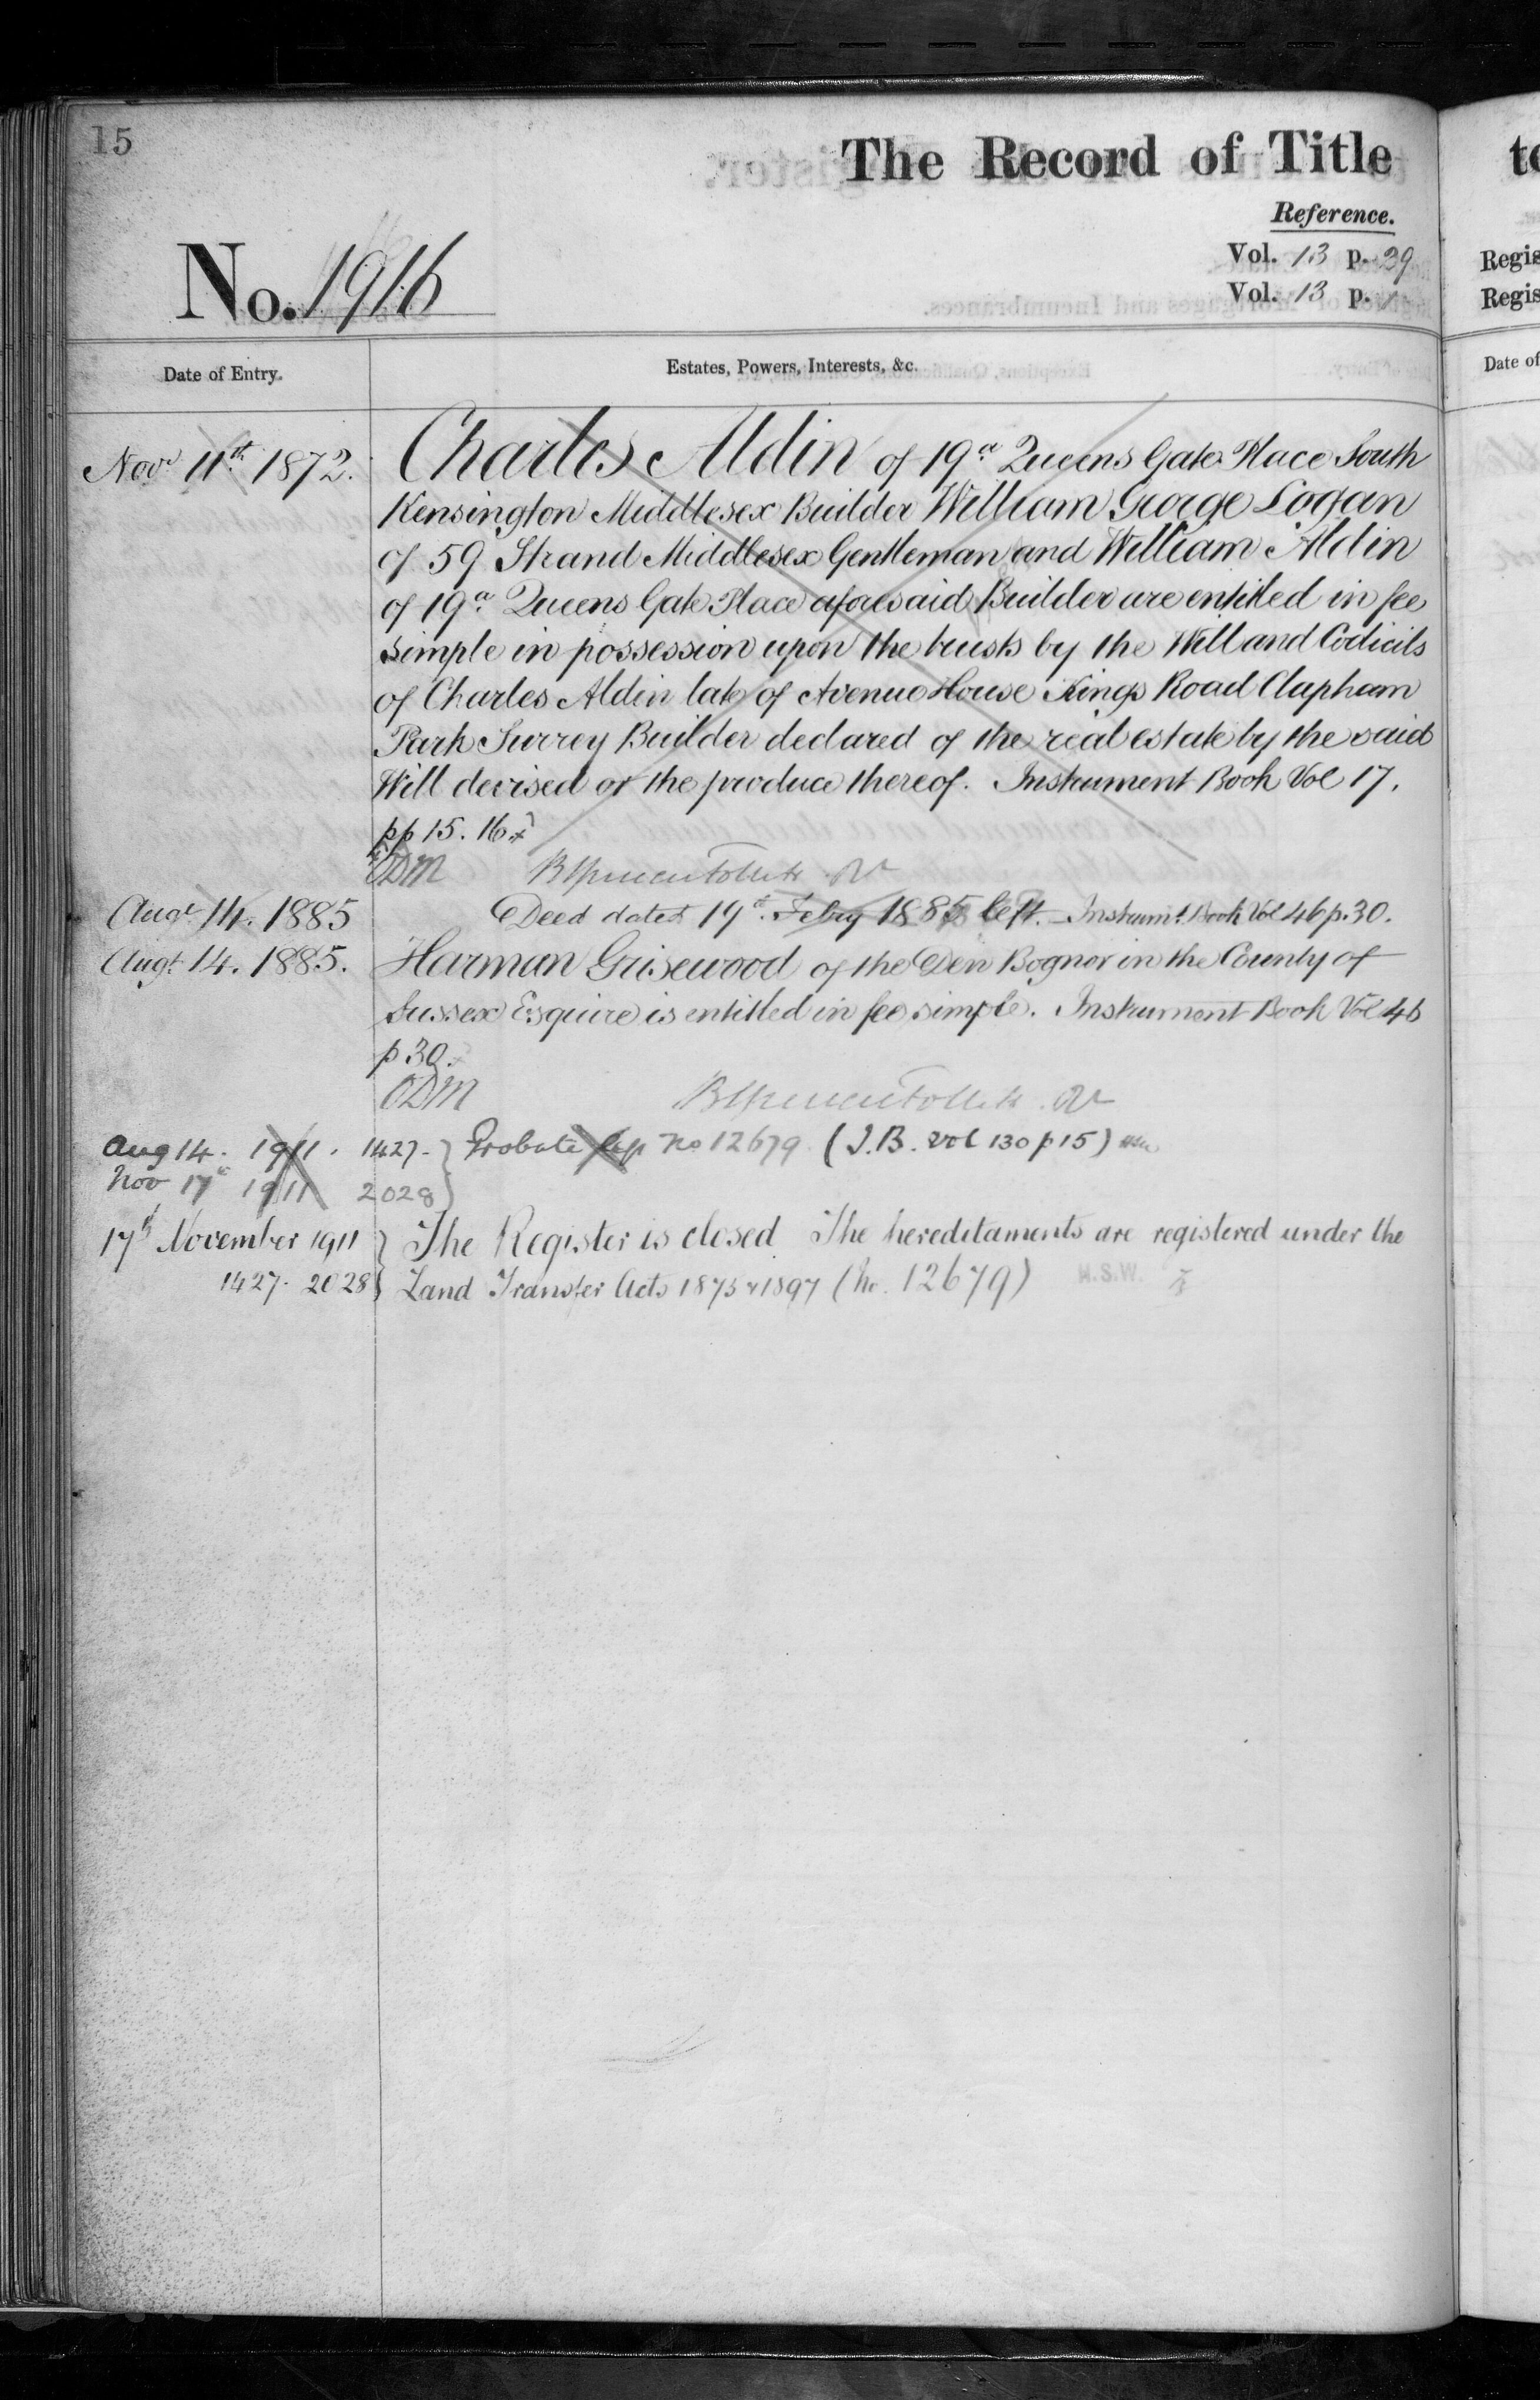 15
The Record of Title
Reference.
No. 1916
Vol. 13 p. 39
Vol. 13 p.
Date of Entry.
Estates, Powers, Interests, &c.
Novr 11th 1872.
Charles Aldin of 19a Queens Gate Place South
Kensington Middlesex Builder William George Logan
of 59 Strand Middlesex Gentleman and William Aldin
of 19a Queens Gate Place aforesaid Builder are entitled in fee
simple in possession upon the trusts by the Will and Codicils
of Charles Aldin late of Avenue House Kings Road Clapham
Park Surrey Builder declared of the real estate by the said
Will devised or the produce thereof. Instrument Book Vol 17.
pp 15. 16
ODM
Augt 14. 1885
Deed dated 19th Feby 1885 left. Instrumt Book Vol 46 p. 30.
Augt 14. 1885.
Harman Grisewood of the Den Bognor in the County of
Sussex Esquire is entitled in fee simple. Instrument Book Vol 46
p 30.
ODM
Aug 14. 1911. 1427. } Probate No 12679. (I.B. vol 130 p 15)
Nov 17th 1911 2028 }
17th November 1911 } The Register is closed The hereditaments are registered under the
1427. 2028 } Land Transfer Acts 1875 & 1897 (No. 12679) H.S.W.
to
Regis
Regis
Date of